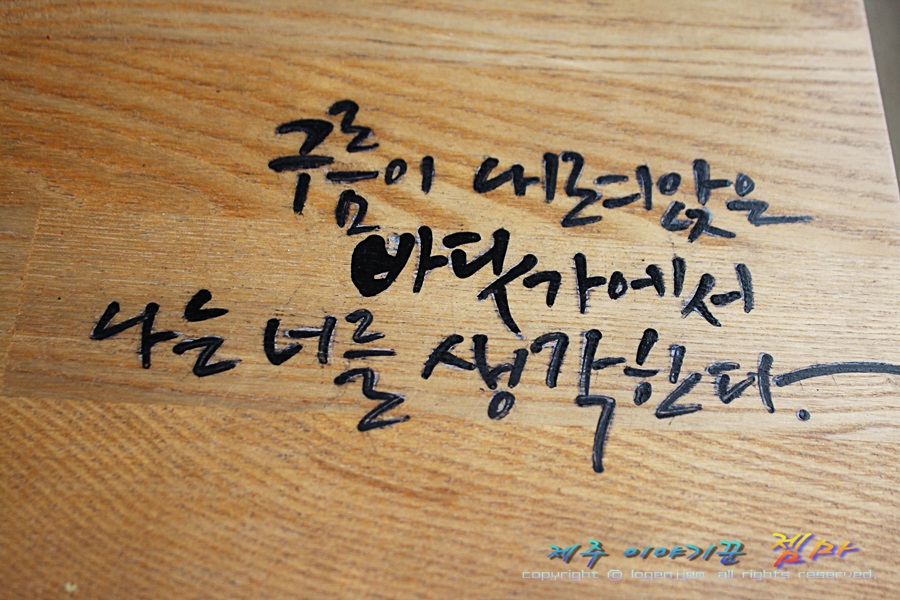 구름이 내려앉은
바닷가에서
나는 너를 생각한다.
제주 이야기꾼 쩸마
copyright © logenjjae all rights reserved